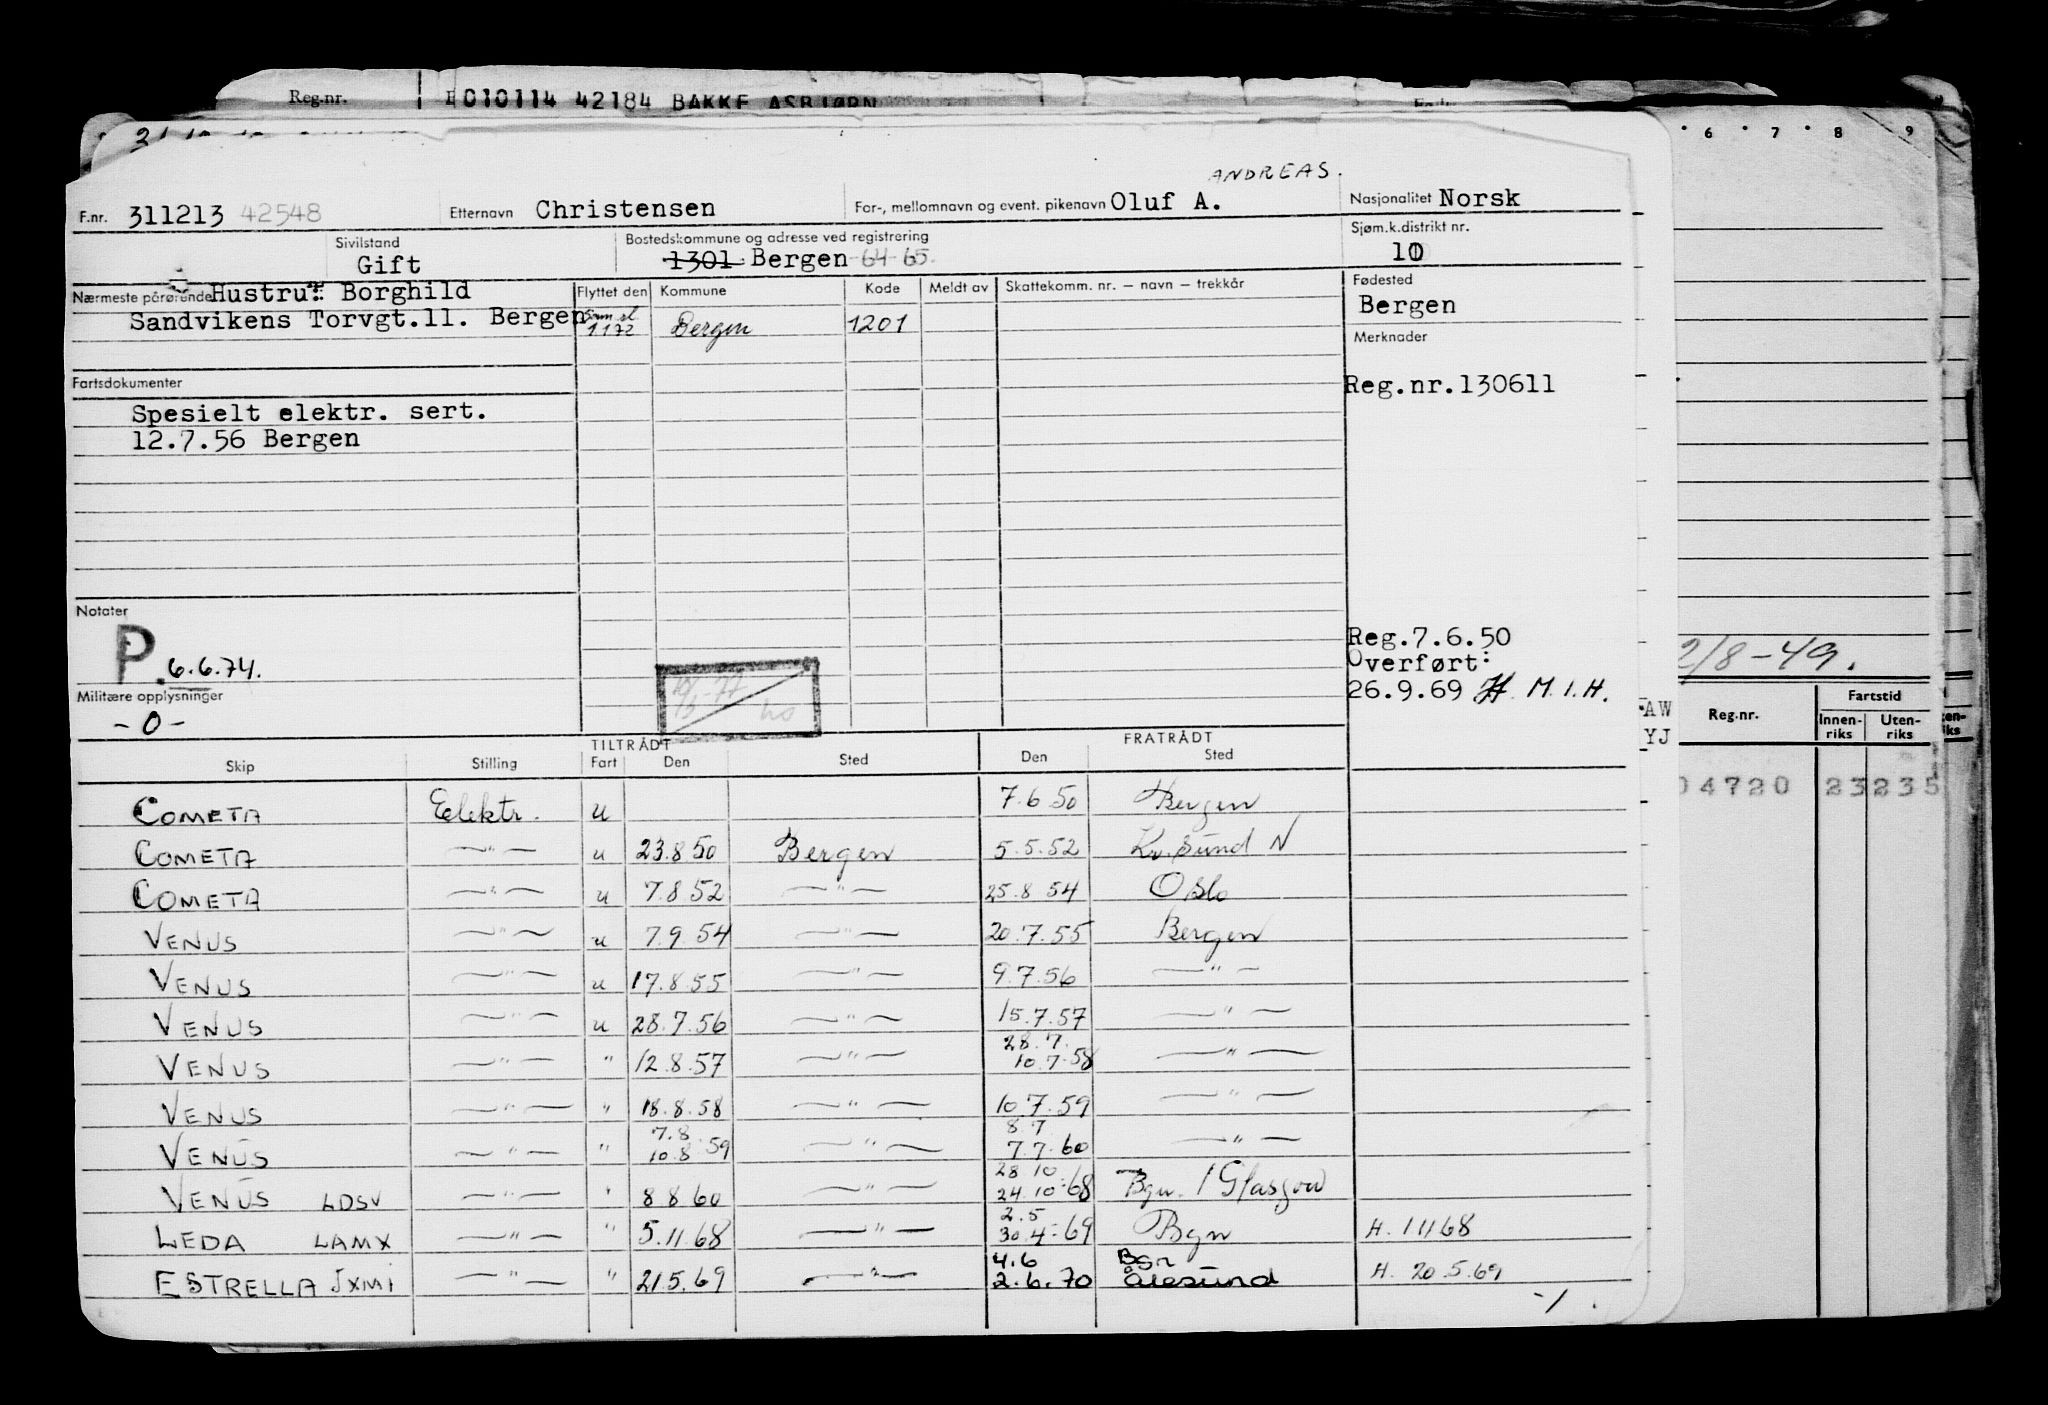 Reg.nr. 010114 42184 BAKKE ASBJØRN
6 7 8 9
ANDREAS.
F.nr. 311213 42548 Etternavn Christensen For-, mellomnavn og event. pikenavn Oluf A. Nasjonalitet Norsk
Sivilstand Gift Bostedskommune og adresse ved registrering 1301 Bergen 64-65 Sjøm.k.distrikt nr. 10
Nærmeste pårørende Hustru: Borghild Flyttet den Kommune Kode Meldt av Skattekomm. nr. – navn – trekkår Fødested
Sandvikens Torvgt.11. Bergen 1.1.72 Bergen 1201 Bergen
Merknader
Fartsdokumenter Reg.nr.130611
Spesielt elektr. sert.
12.7.56 Bergen
Notater
P. 6.6.74.
Reg.7.6.50
Overført:
26.9.69 H. M.I.H.
Militære opplysninger
-0-
2/8-49.
AW
YJ
Reg.nr. Fartstid
Innen-riks Uten-riks
04720 23235
TILTRÅDT FRATRÅDT
Skip Stilling Fart Den Sted Den Sted
COMETA Elektr. u 7.6.50 Bergen
COMETA —"— u 23.8.50 Bergen 5.5.52 Kr.sund N
COMETA —"— u 7.8.52 —"— 25.8.54 Oslo
VENUS —"— u 7.9.54 —"— 20.7.55 Bergen
VENUS —"— u 17.8.55 —"— 9.7.56 —"—
VENUS —"— u 28.7.56 —"— 15.7.57 —"—
28.7.
VENUS —"— " 12.8.57 —"— 10.7.58 —"—
VENUS —"— " 18.8.58 —"— 10.7.59 —"—
7.8. 8 7
VENUS —"— " 10.8.59 —"— 7.7.60 —"—
28 10
VENUS LDSV —"— " 8 8 60 —"— 24.10.68 Bgn. / Glasgow
2.5
LEDA LAMX —"— " 5.11.68 —"— 30.4.69 Bgn H. 1 11 68
4.6 Bgn
ESTRELLA JXMI —"— " 21.5.69 —"— 2.6.70 Ålesund H. 20.5.69
-/.